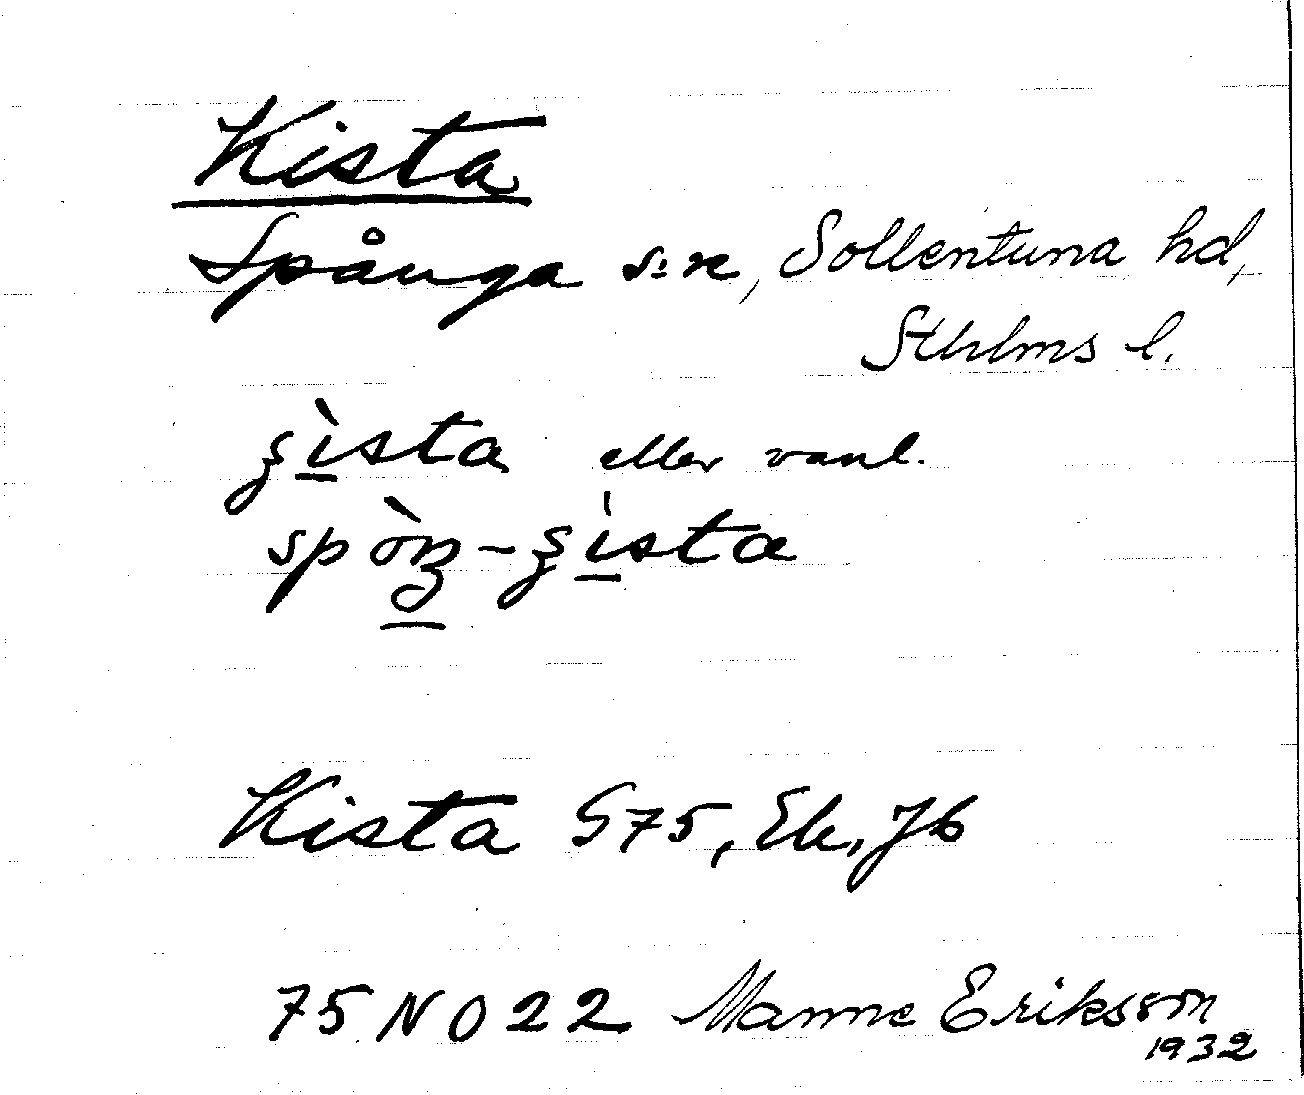 Kista
Spånga s:n, Sollentuna hd,
Sthlms l.
ʒ̀ista eller vanl.
spòŋ-ʒìsta
Kista G75, Ek, Jb
75 NO 22 Manne Eriksson
1932